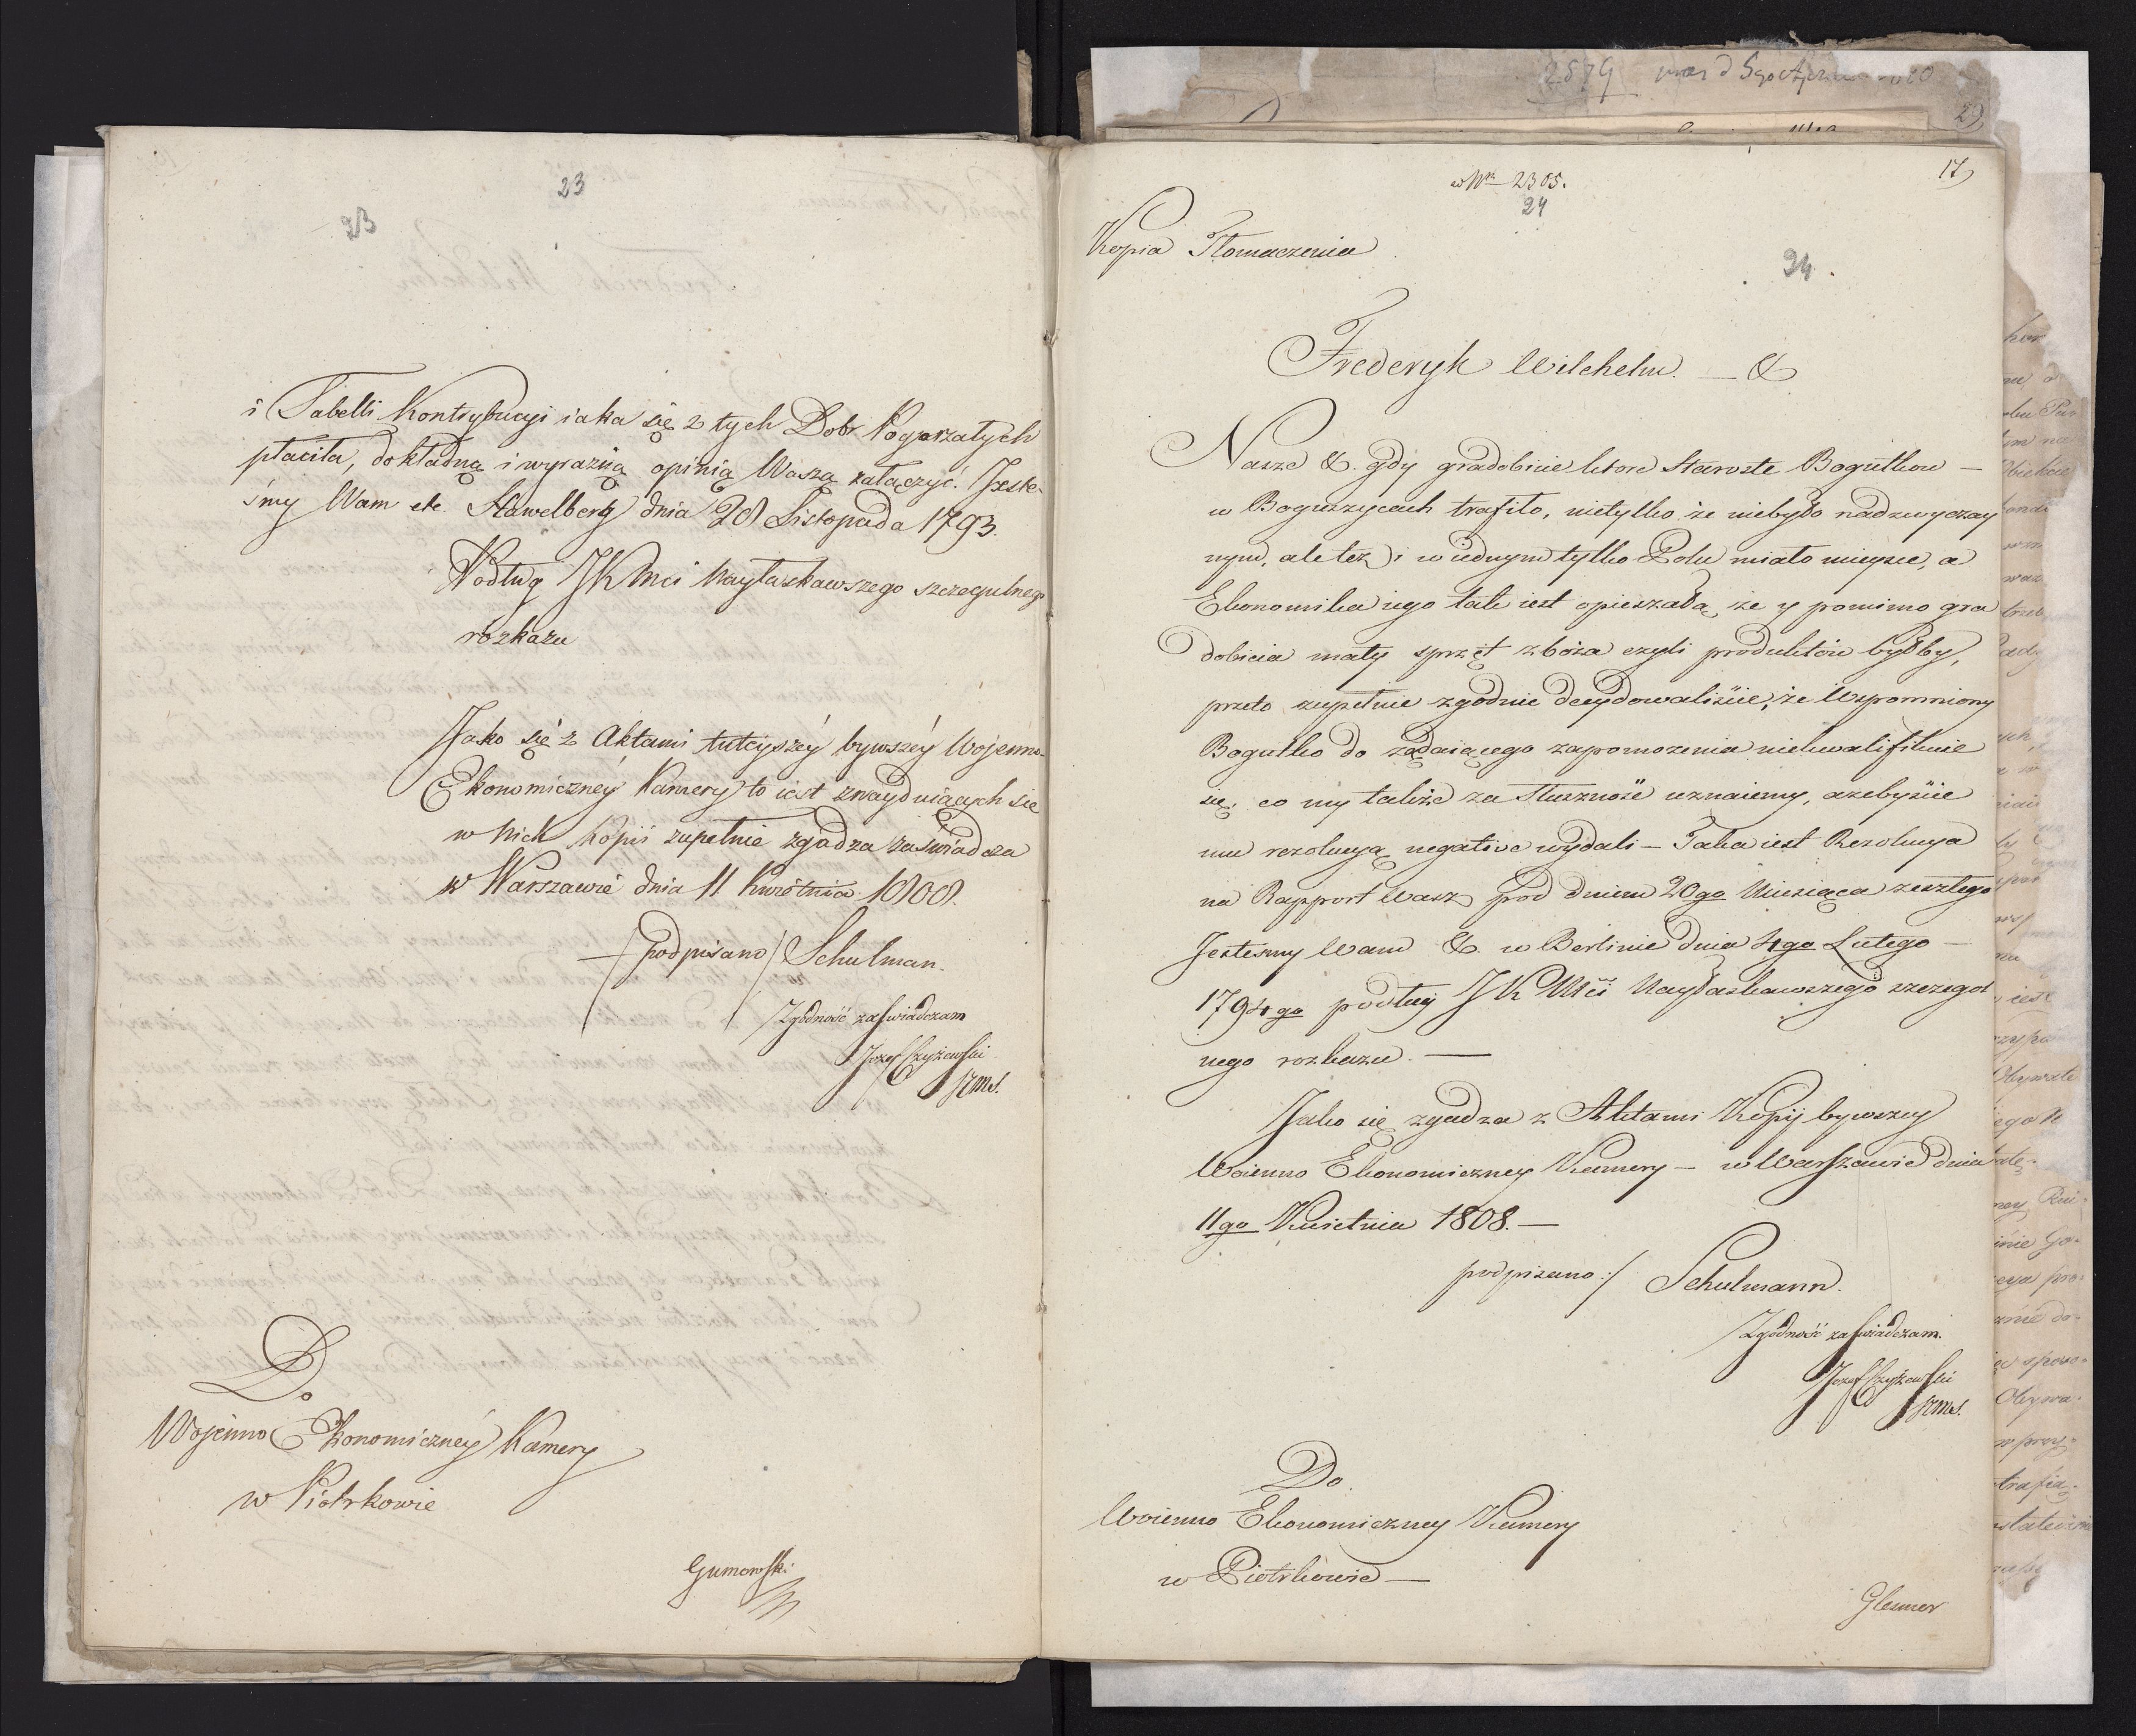 23
23
i Tabelli Kontrybucyi iaka się z tych Dobr Pogorzałych
płaciła, dokładną i wyrazną opinią Waszą załączyć. Jeste-
śmy Wam etc. Stawelberg dnia 28 Listopada 1793.
Podług JKMci Nayłaskawszego szczegulnego
rozkazu
Jako się z Aktami tuteyszey bywszey Wojenno-
Ekonomiczney Kamery to iest znayduiących się
w Nich Kopii zupełnie zgadza zaświadcza
w Warszawie dnia 11 Kwietnia 1808.
/podpisano/ Schulman.
Zgodność zaświadczam
Jozef Czyżewski
Do
Wojenno Ekonomiczney Kamery
w Piotrkowie
Gumowski
17
w Nrze 2305.
24
Kopia Tłomaczenia
24.
Frederyk Wilchelm. — &
Nasze &. gdy gradobicie ktore Staroste Bogutkow —
w Boguszycach trafiło, nietylko że niebyło nadzwyczay
nym, ale też i w iednym tylko Polu miało mieysce, a
Ekonomika iego tak iest opieszałą, że y pomimo gra
dobicia mały sprzęt zboża czyli produktow byłby,
przeto zupełnie zgodnie decydowaliście, że Wspomniony
Bogutko do żądaiącego zapomożenia niekwalifikuie
się, co my także za Słuszność uznaiemy, azebyście
mu rezolucyą negative wydali — Taka iest Rezolucya
na Rapport Wasz pod dniem 20go Miesiąca zeszłego
Jestesmy Wam &. w Berlinie dnia 4go Lutego —
1794go podług JKMci Nayłaskawszego szczegol
nego rozkazu. —
Jako się zgadza z Aktami Kopij bywszey
Woienno Ekonomiczney Kamery — w Warszawie dnia
11go Kwietnia 1808. —
podpisano:/ Schulmann.
Zgodność zaświadczam.
Jozef Czyżewski
Do
Woienno Ekonomiczney Kamery
w Piotrkowie —